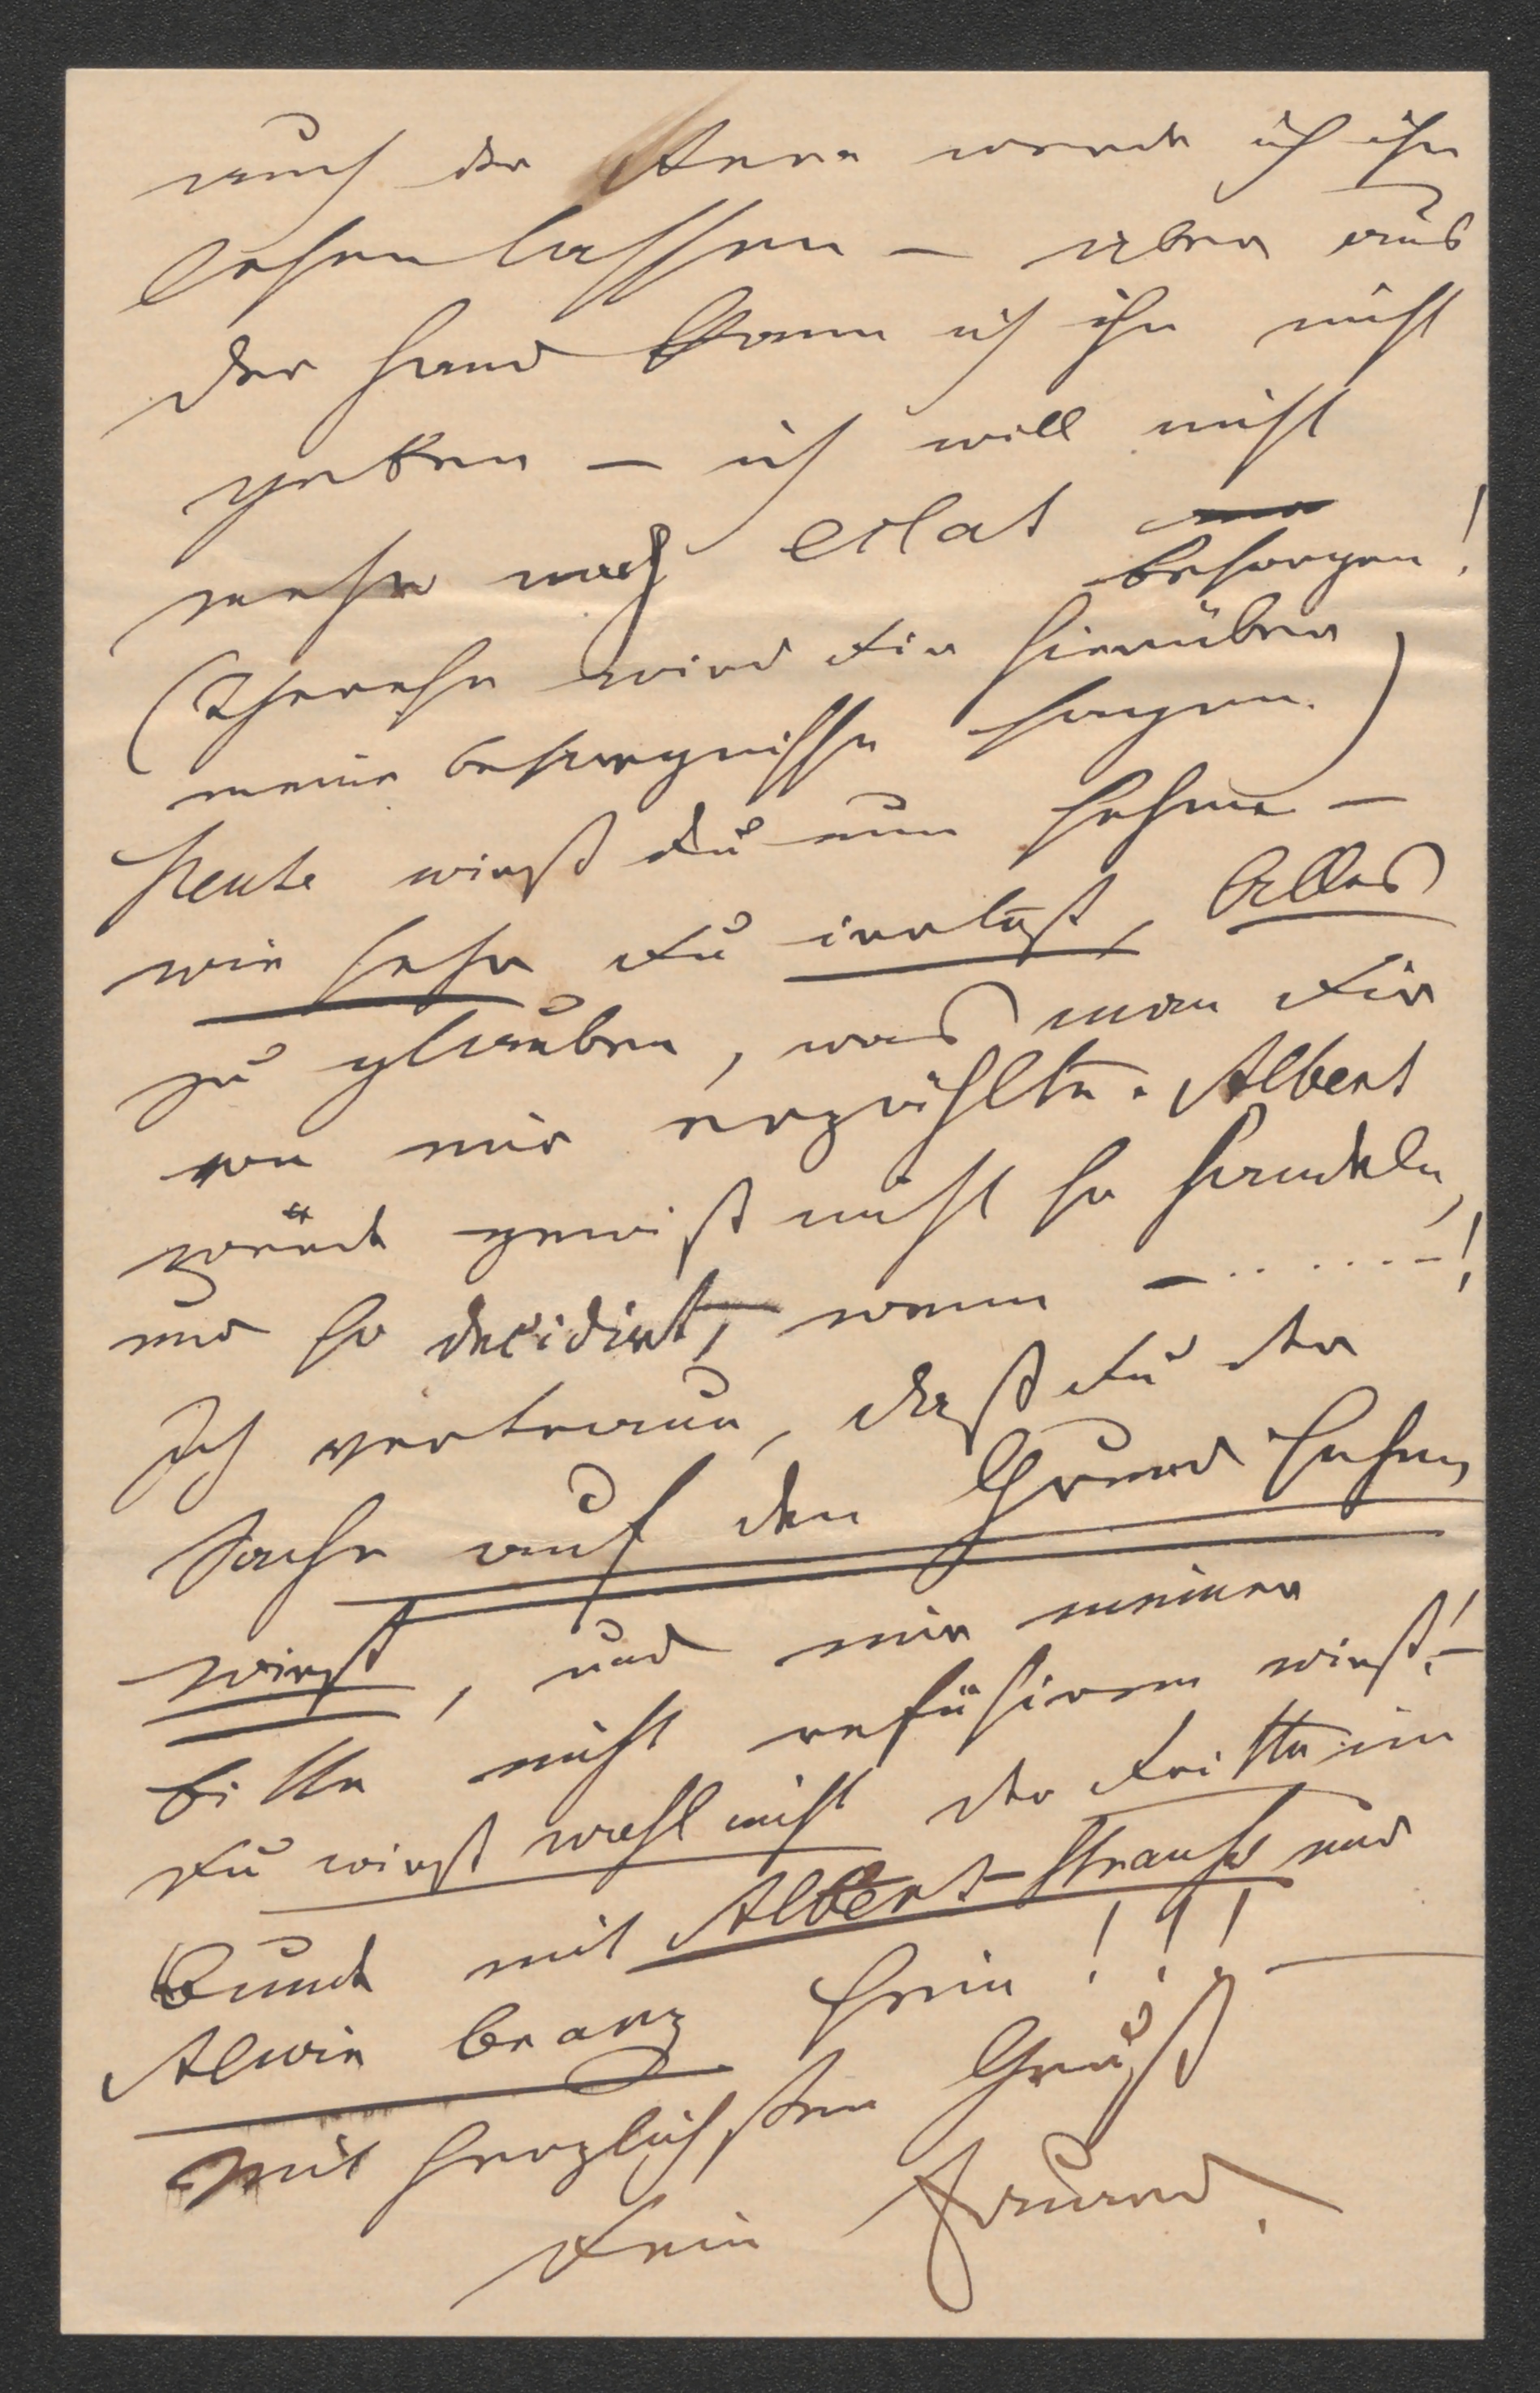 auch der Anna werde ich ihn
lesen lassen – aber aus
der Hand kann ich ihn nicht
geben – ich will nicht
mehr noch eclat
besorgen!
(Therese wird Dir hierüber
meine Besorgnisse sagen.)
Heute wirst Du nun sehen –
wie sehr Du irrtest, Alles
zu glauben, was man Dir
von mir erzählte. Albert
würde gewiß nicht so handeln,
und so decidirt, wenn – . . . . . . – !
Ich vertraue, daß Du der
Sache auf den Grund sehen
wirst, und mir meine
Bitte nicht refüsiren wirst! –
Du wirst wohl nicht der Dritte im
Bunde mit Albert Strauß und
Alwin sein!!! –
Mit herzlichstem Gruß
Dein Freund.